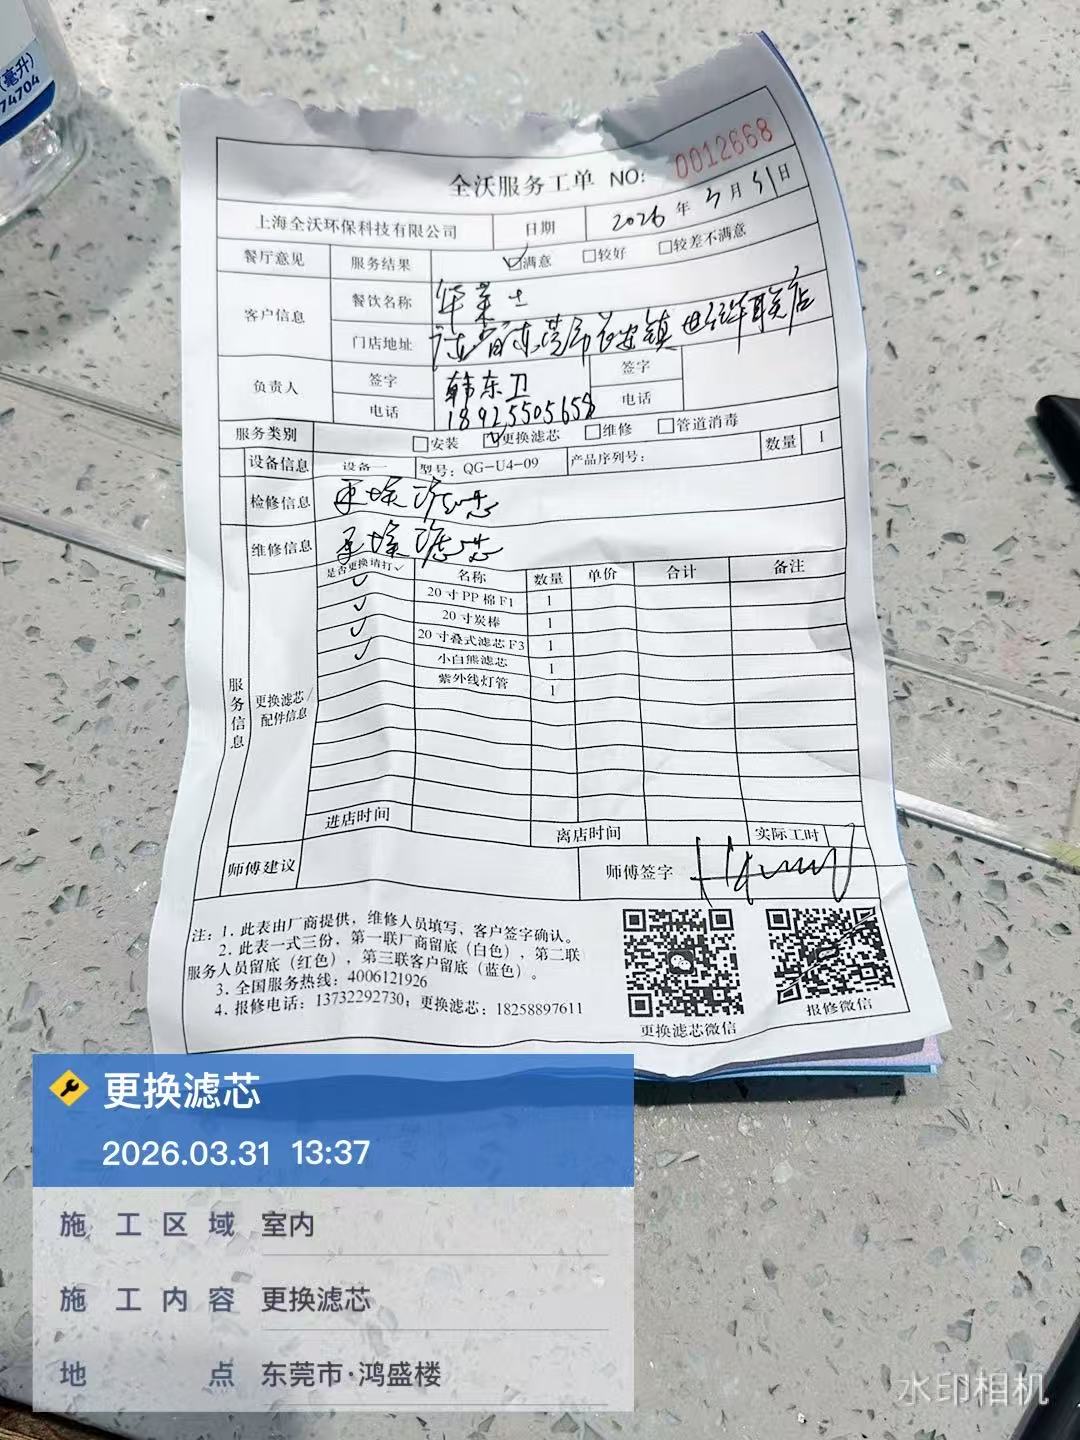 (毫升)
74704
全沃服务工单 NO: 0012668
上海全沃环保科技有限公司 日期 2026年3月31日
餐厅意见 服务结果 ☑满意 □较好 □较差不满意
客户信息 餐饮名称 华莱士
门店地址 广东省东莞市长安镇 华联店
负责人 签字 韩东卫 签字
电话 18925505658 电话
服务类别 □安装 ☑更换滤芯 □维修 □管道消毒
设备信息 设备一 型号: QG-U4-09 产品序列号: 数量 1
检修信息 更换滤芯
维修信息 更换滤芯
服务信息
更换滤芯/
配件信息
是否更换请打✓ 名称 数量 单价 合计 备注
✓ 20寸PP棉F1 1
✓ 20寸炭棒 1
✓ 20寸叠式滤芯F3 1
✓ 小白熊滤芯 1
紫外线灯管 1
进店时间 离店时间 实际工时
师傅建议 师傅签字
注: 1. 此表由厂商提供，维修人员填写、客户签字确认。
2. 此表一式三份，第一联厂商留底（白色），第二联
服务人员留底（红色），第三联客户留底（蓝色）。
3. 全国服务热线: 4006121926
4. 报修电话: 13732292730; 更换滤芯: 18258897611
更换滤芯微信 报修微信
更换滤芯
2026.03.31 13:37
施工区域 室内
施工内容 更换滤芯
地点 东莞市·鸿盛楼
水印相机